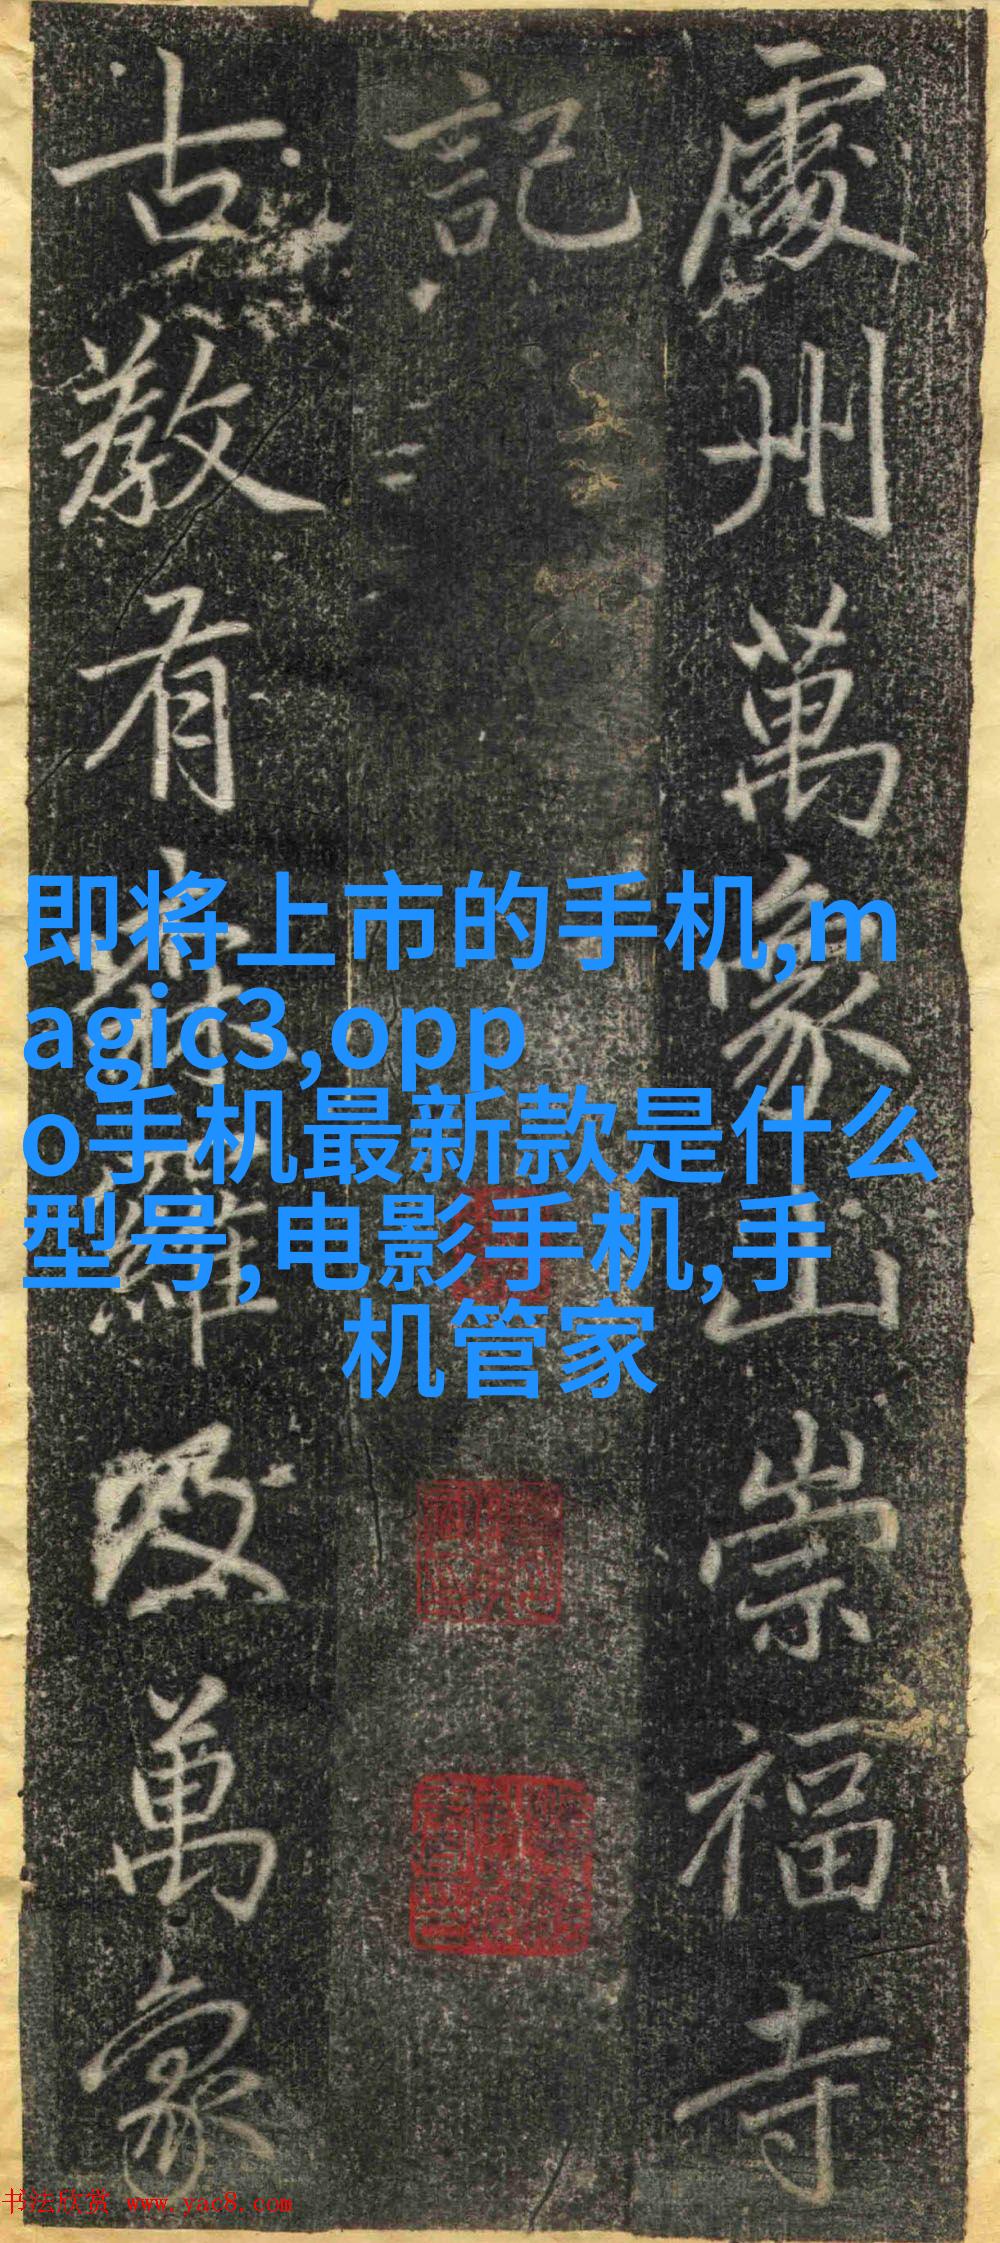 處州萬象山崇福寺
記
古教有羅及萬象
即将上市的手机,m
agic3,opp
o手机最新款是什么
型号,电影手机,手
机管家
书法欣赏 www.yac8.com